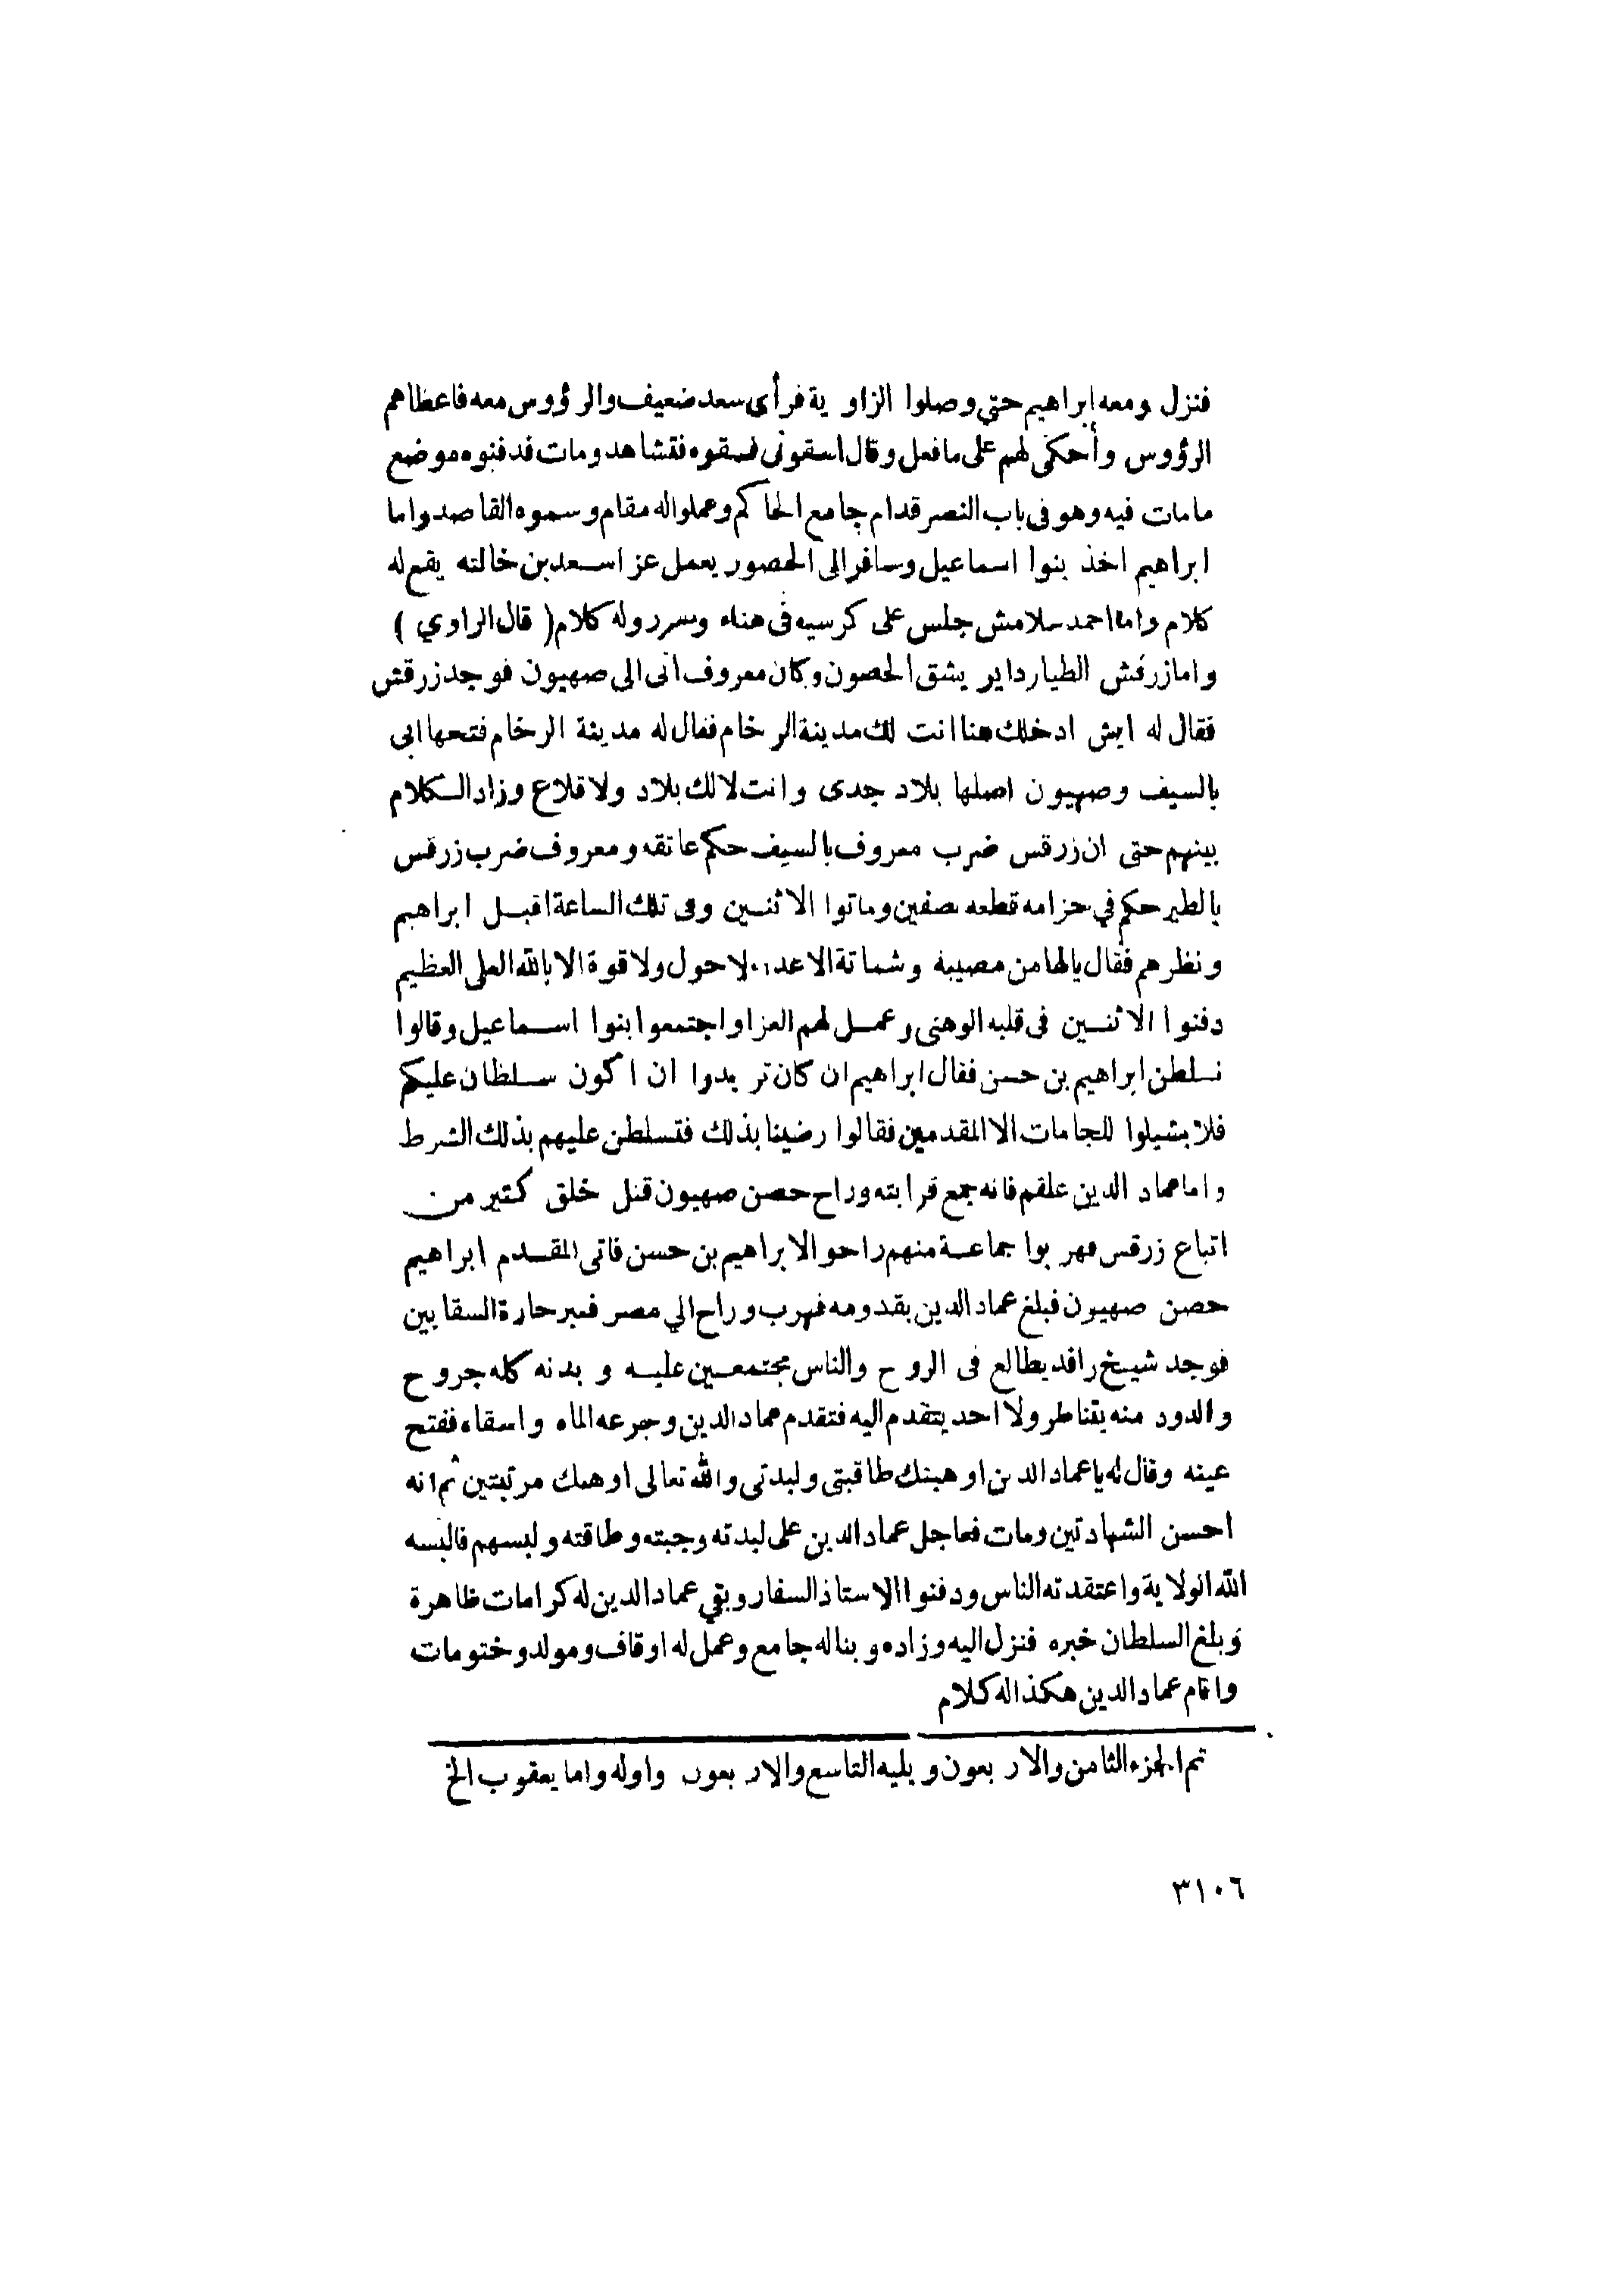 فنزل ومعه ابراهيم حتي وصلوا الزاوية فرأى سعد ضعيف والرؤوس معه فاعطاهم
الرؤوس وأحكى لهم على مافعل وقال اسقونى فسقوه فتشاهد ومات فدفنوه موضع
مامات فيه وهو فى باب النصر قدام جامع الحاكم وعملوا له مقام وسموه القاصد واما
ابراهيم اخذ بنوا اسماعيل وسافر الى الحصور يعمل عزا سعد بن خالته يقع له
كلام واما احمد سلامش جلس على كرسيه فى هناء وسرر وله كلام (قال الراوي)
واما زرقش الطيار داير يشق الحصون وكان معروف اتى الى صهيون فوجد زرقش
فقال له ايش ادخلك هنا انت لك مدينة الرخام فقال له مدينة الرخام فتحها ابى
بالسيف وصهيون اصلها بلاد جدى وانت لا لك بلاد ولا قلاع وزاد الكلام
بينهم حتى ان زرقس ضرب معروف بالسيف حكم عاتقه ومعروف ضرب زرقس
بالطبر حكم في حزامه قطعه نصفين وماتوا الاثنين وفى تلك الساعة اقبل ابراهيم
ونظرهم فقال يالها من مصيبة وشماتة الاعداء لاحول ولا قوة الا بالله العلى العظيم
دفنوا الاثنين فى قلبه الوهنى وعمل لهم العزا واجتمعوا بنوا اسماعيل وقالوا
نسلطن ابراهيم بن حسن فقال ابراهيم ان كان تريدوا ان اكون سلطان عليكم
فلا يشيلوا للجامات الا المقدمين فقالوا رضينا بذلك فتسلطن عليهم بذلك الشرط
واما عماد الدين علقم فانه جمع قرابته وراح حصن صهيون قتل خلق كثير من
اتباع زرقس فهربوا جماعة منهم راحوا لابراهيم بن حسن فاتى المقدم ابراهيم
حصن صهيون فبلغ عماد الدين بقدومه فهرب وراح الي مصر فعبر حارة السقايين
فوجد شيخ راقد يطالع فى الروح والناس مجتمعين عليه وبدنه كله جروح
والدود منه يتناطر ولا احد يتقدم اليه فتقدم عماد الدين وجرعه الماء واسقاه ففتح
عينه وقال له ياعماد الدين اوهبتك طاقيتى ولبدتى والله تعالى اوهبك مرتبتين ثم انه
احسن الشهادتين ومات فعاجل عماد الدين على لبدته وجبته وطاقته ولبسهم فالبسه
الله الولاية واعتقدته الناس ودفنوا الاستاذ السفار وبقي عماد الدين له كرامات ظاهرة
وبلغ السلطان خبره فنزل اليه وزاده وبنا له جامع وعمل له اوقاف ومولد وختومات
واقام عماد الدين هكذا له كلام
تم الجزء الثامن والاربعون ويليه التاسع والاربعون واوله واما يعقوب الخ
٣١٠٦